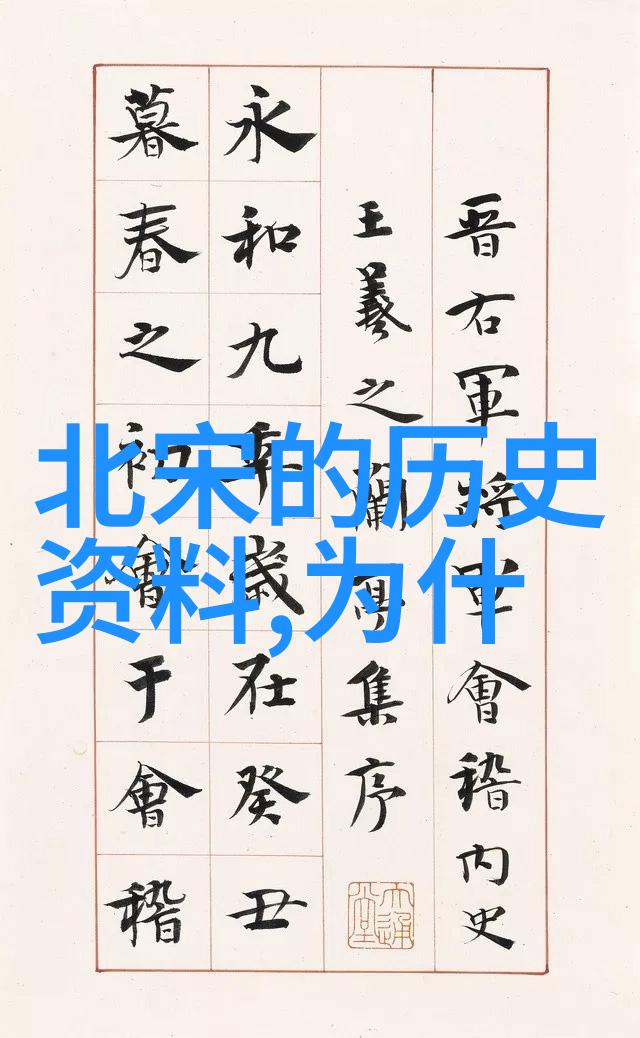 晋右軍將軍會稽内史
王羲之蘭亭集序
永和九年歲在癸丑
暮春之初會于會稽
北宋的历史
资料,为什